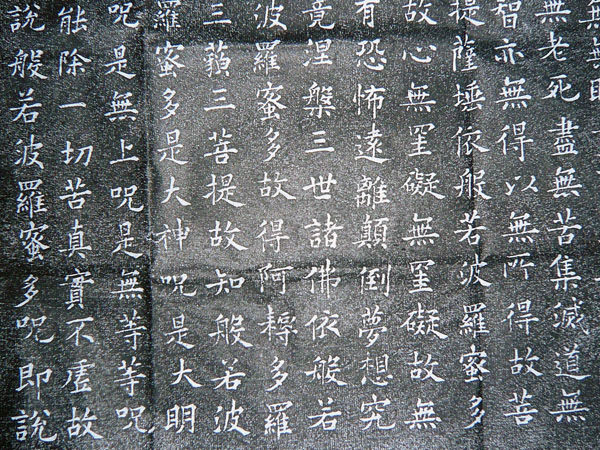 無老死盡無苦集滅道無
智亦無得以無所得故菩
提薩埵依般若波羅蜜多
故心無罣礙無罣礙故無
有恐怖遠離顛倒夢想究
竟涅槃三世諸佛依般若
波羅蜜多故得阿耨多羅
三藐三菩提故知般若波
羅蜜多是大神呪是大明
呪是無上呪是無等等呪
能除一切苦真實不虛故
說般若波羅蜜多呪即說